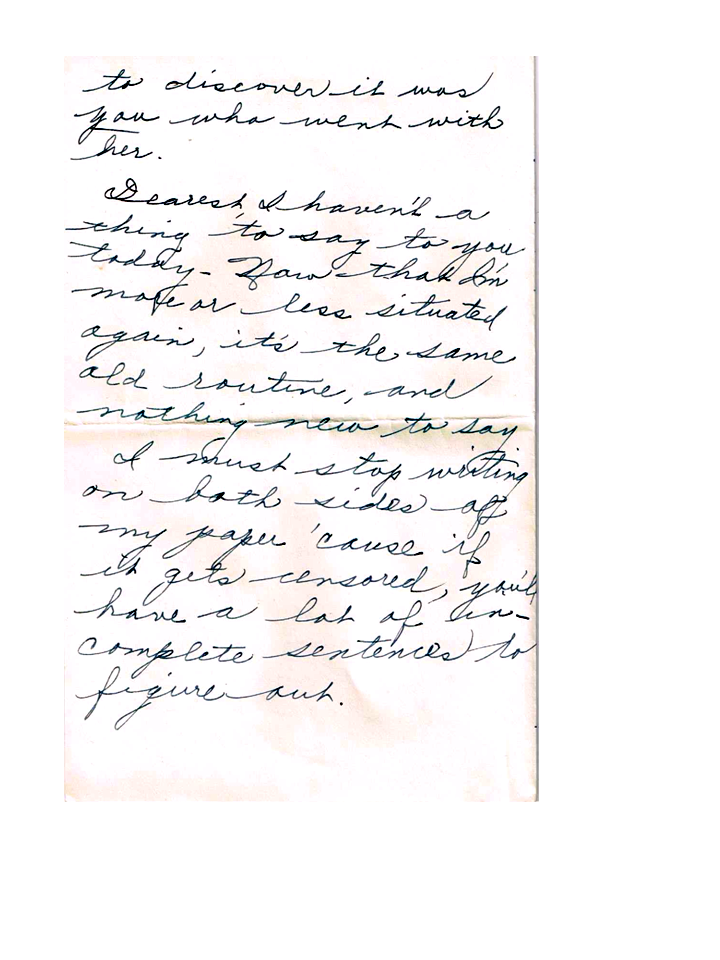 to discover it was
you who went with
her.
Dearest I haven't a
thing to say to you
today - Now that I'm
more or less situated
again, it's the same
old routine, and
nothing new to say
I must stop writing
on both sides of
my paper 'cause if
it gets censored, you'll
have a lot of in-
complete sentences to
figure out.